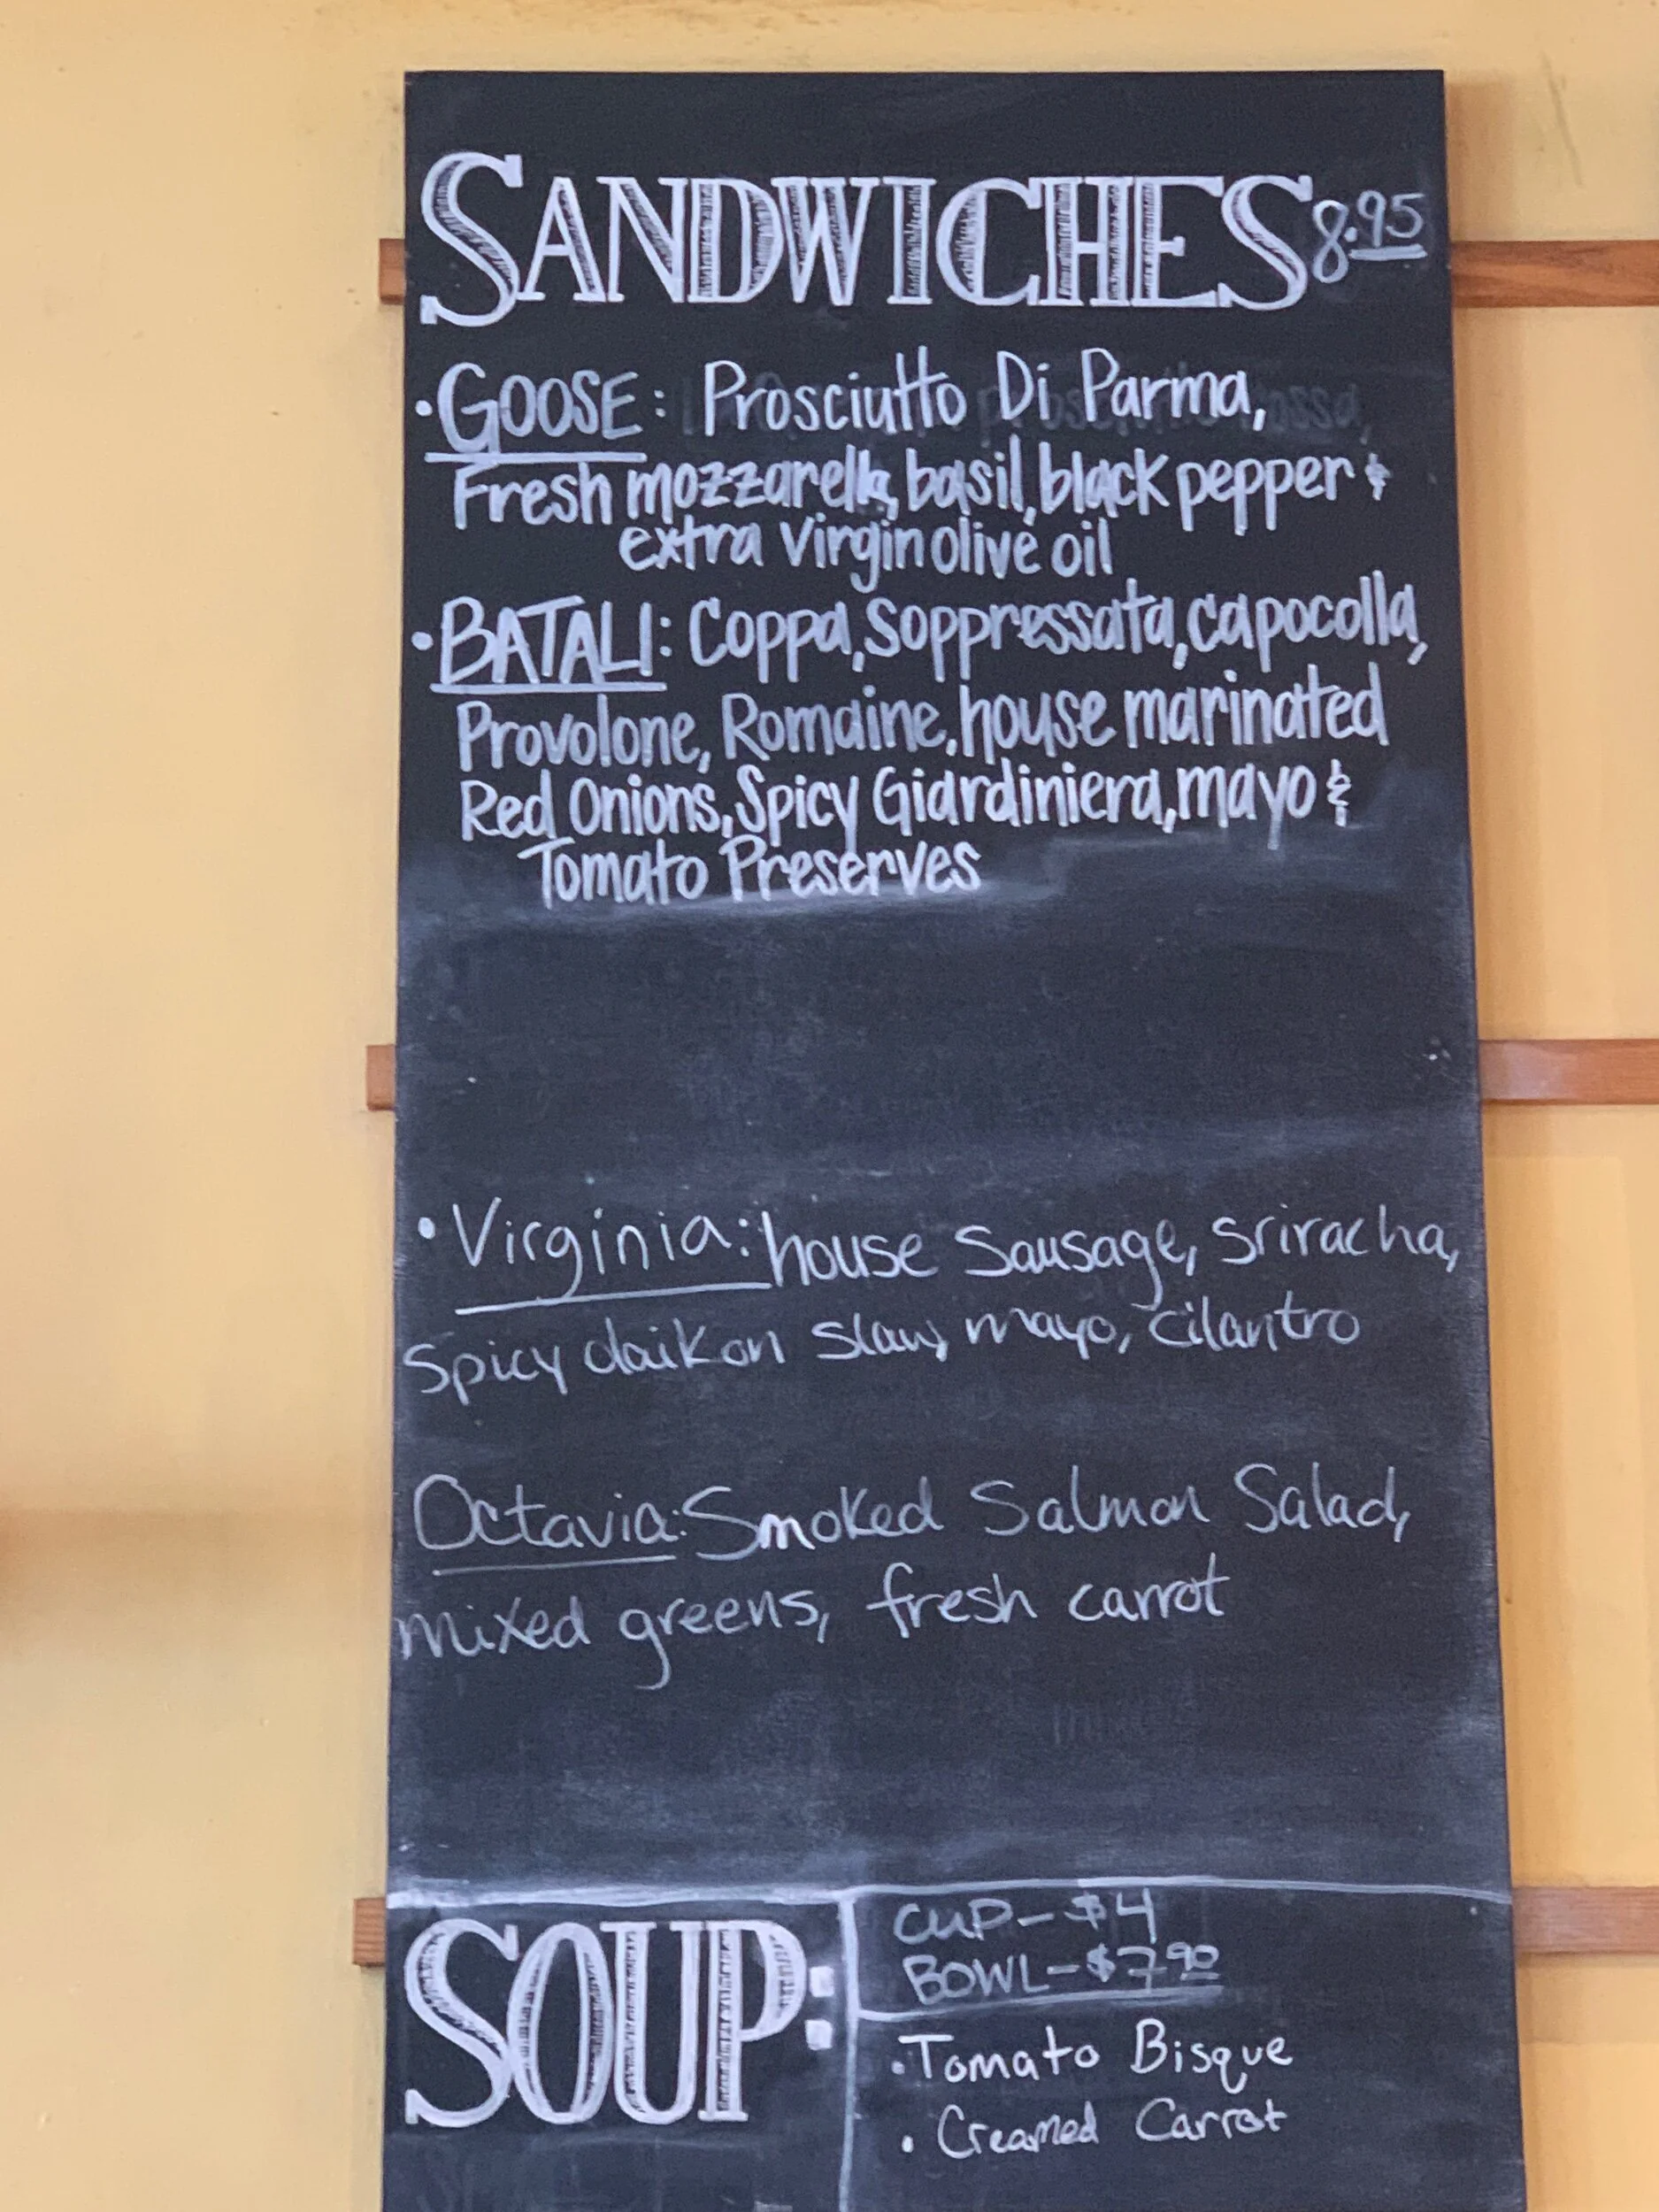 SANDWICHES 8.95
• GOOSE: Prosciutto Di Parma,
Fresh mozzarella, basil, black pepper &
extra virgin olive oil
• BATALI: Coppa, Soppressata, capocolla,
Provolone, Romaine, house marinated
Red Onions, Spicy Giardiniera, mayo &
Tomato Preserves
• Virginia: house Sausage, Sriracha,
Spicy daikon Slaw, mayo, cilantro
Octavia: Smoked Salmon Salad,
mixed greens, fresh carrot
SOUP:
CUP - $4
BOWL - $7.90
• Tomato Bisque
• Creamed Carrot